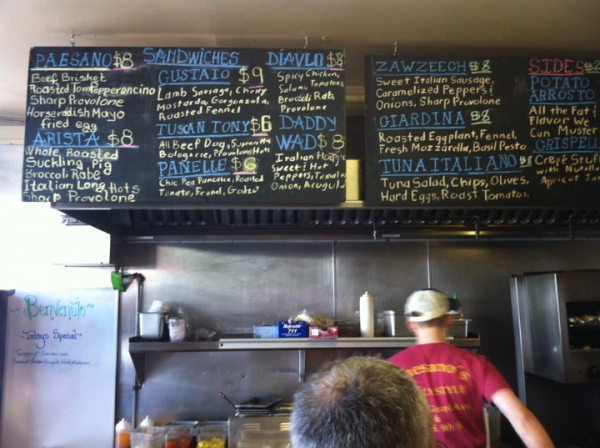 PAESANO $8
Beef Brisket
Roasted Tom Pepperoncino
Sharp Provolone
Horseradish Mayo
fried egg
ARISTA $8
Whole Roasted
Suckling Pig
Broccoli Rabe
Italian Long Hots
Sharp Provolone
SANDWICHES
GUSTAIO $9
Lamb Sausage, Cherry
Mostarda, Gorgonzola,
Roasted Fennel
TUSCAN TONY $6
All Beef Dog,
Bolognese,
PANELLE $6
Chic Pea Pancake, Roasted
Tomato, Fennel,
DIAVLO $8
Spicy Chicken,
Salami, Tomatoes
Broccoli Rab,
Provolone
DADDY
WAD $8
Italian Hoagy
Sweet & Hot
Peppers, Tomato
Onion, Arugula
ZAWZEECH $8
Sweet Italian Sausage,
Caramelized Peppers &
Onions, Sharp Provolone
GIARDINA $8
Roasted Eggplant, Fennel,
Fresh Mozzarella, Basil Pesto
TUNA ITALIANO $8
Tuna Salad, Chips, Olives,
Hard Eggs, Roast Tomatos
SIDES $2
POTATO
ARROSTO
All the Fat &
Flavor We
Can Muster
CRISPELL
Crepe Stuff
with Nutella
Apricot Jam
Benvenuto
Todays Special
esano's
STYLE